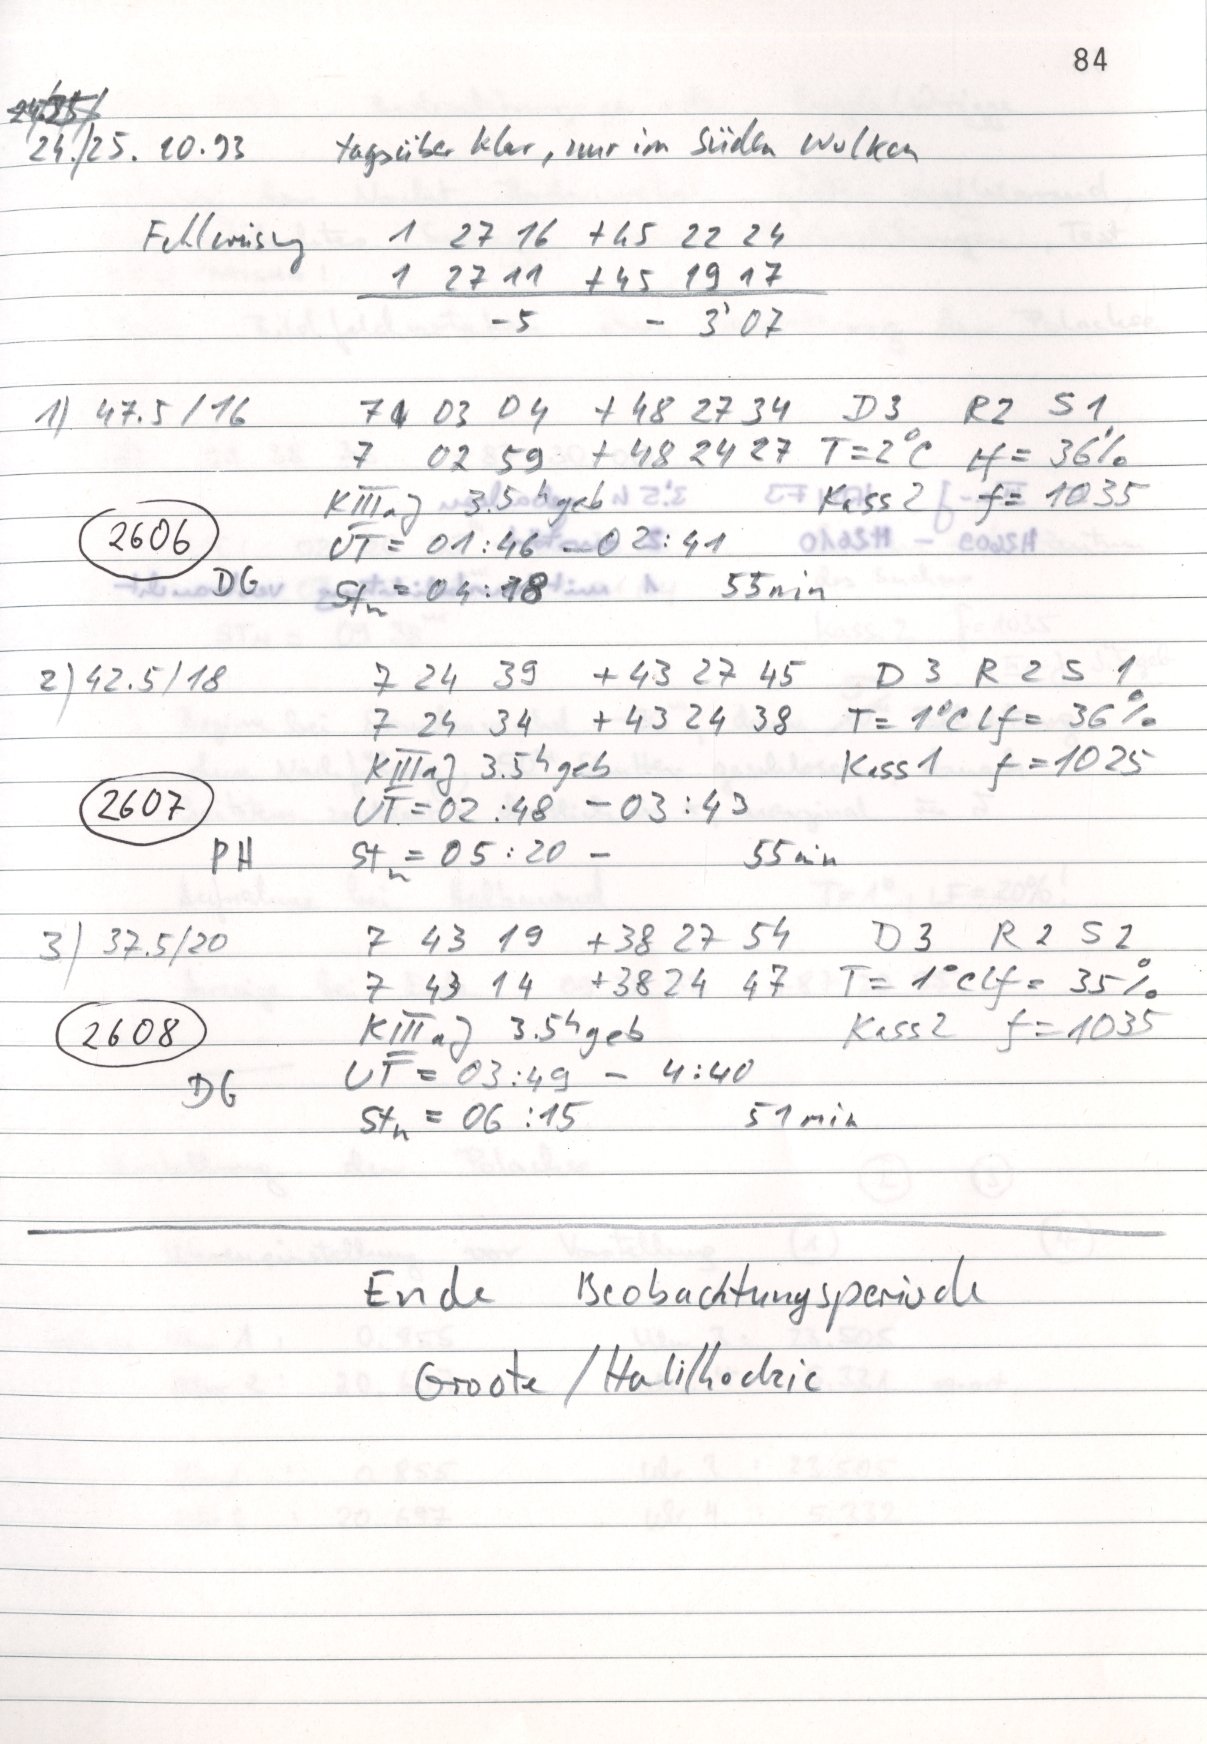 84
24./25. 10.93 tagsüber klar, nur im Süden Wolken
Fehlweisung 1 27 16 +45 22 24
1 27 11 +45 19 17
-5 - 3' 07
1) 47.5/16 7 03 04 +48 27 34 D3 R2 S1
7 02 59 +48 24 27 T=2°C Lf= 36%
KIIIaJ 3.5h geb Kass 2 f= 1035
2606 UT= 01:46 - 02:41
DG Stw = 04:18 55 min
2) 42.5/18 7 24 39 +43 27 45 D 3 R 2 S 1
7 24 34 +43 24 38 T= 1°C Lf= 36%
KIIIaJ 3.5h geb Kass 1 f=1025
2607 UT=02:48 - 03:43
PH Stw = 05:20 - 55 min
3) 37.5/20 7 43 19 +38 27 54 D3 R2 S2
7 43 14 +38 24 47 T= 1°C Lf= 35%
KIIIaJ 3.5h geb Kass 2 f=1035
2608 UT= 03:49 - 4:40
DG Stw = 06:15 51 min
Ende Beobachtungsperiode
Groote/Halilhodzic